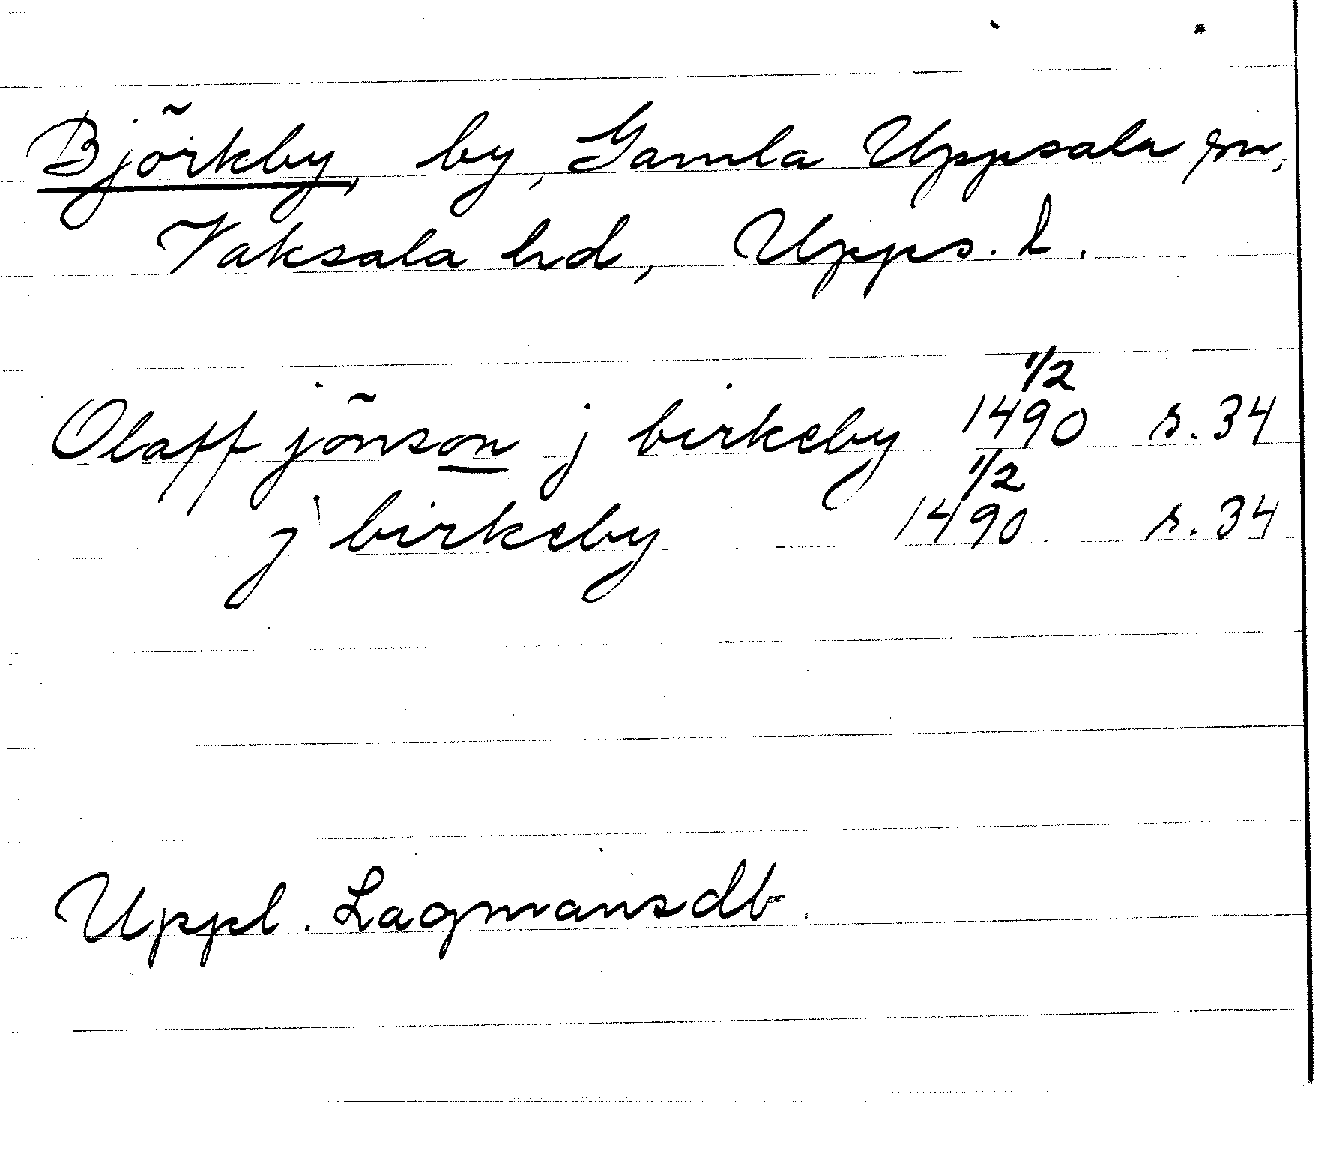 Björkby, by, Gamla Uppsala sn,
Vaksala hd, Upps. l.
Olaff jönson j birkeby 1/2 1490 s. 34
j birkeby 1/2 1490 s. 34
Uppl. Lagmansdb.